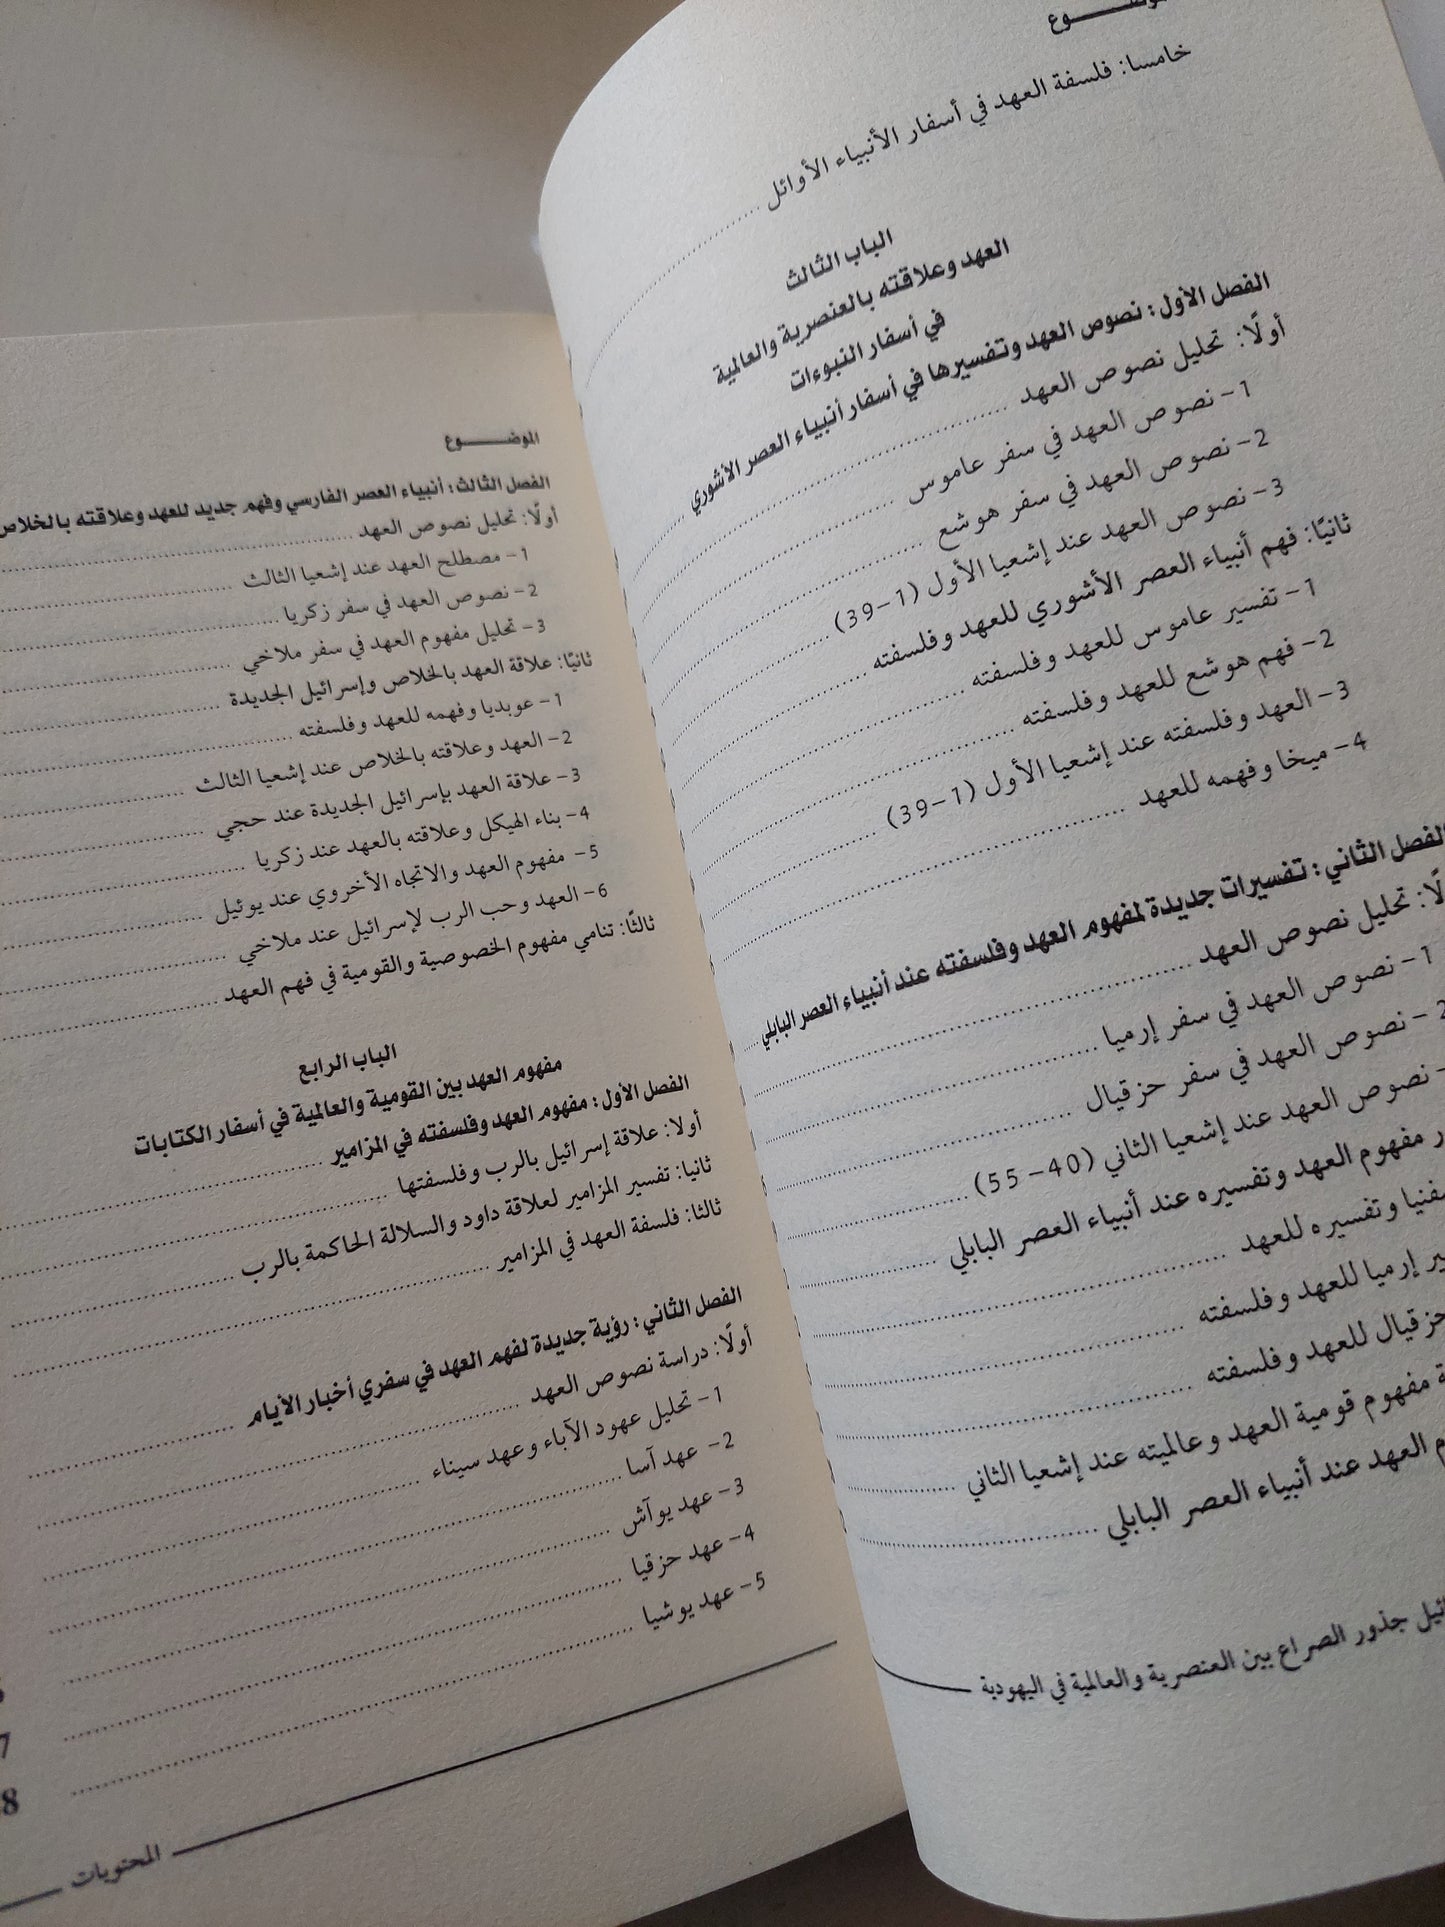 الموضـــــوع
خامسا: فلسفة العهد في أسفار الأنبياء الأوائل
الباب الثالث
العهد وعلاقته بالعنصرية والعالمية
في أسفار النبوءات
الفصل الأول: نصوص العهد وتفسيرها في أسفار أنبياء العصر الأشوري
أولًا: تحليل نصوص العهد
1- نصوص العهد في سفر عاموس
2- نصوص العهد في سفر هوشع
3- نصوص العهد عند إشعيا الأول (1-39)
ثانيًا: فهم أنبياء العصر الأشوري للعهد وفلسفته
1- تفسير عاموس للعهد وفلسفته
2- فهم هوشع للعهد وفلسفته
3- العهد وفلسفته عند إشعيا الأول (1-39)
4- ميخا وفهمه للعهد
الفصل الثاني: تفسيرات جديدة لمفهوم العهد وفلسفته عند أنبياء العصر البابلي
تحليل نصوص العهد
1- نصوص العهد في سفر إرميا
2- نصوص العهد في سفر حزقيال
- نصوص العهد عند إشعيا الثاني (40-55)
مفهوم العهد وتفسيره عند أنبياء العصر البابلي
وتفسيره للعهد
إرميا للعهد وفلسفته
حزقيال للعهد وفلسفته
مفهوم قومية العهد وعالميته عند إشعيا الثاني
العهد عند أنبياء العصر البابلي
جذور الصراع بين العنصرية والعالمية في اليهودية
الموضـــــوع
الفصل الثالث: أنبياء العصر الفارسي وفهم جديد للعهد وعلاقته بالخلاص
أولًا: تحليل نصوص العهد
1- مصطلح العهد عند إشعيا الثالث
2- نصوص العهد في سفر زكريا
3- تحليل مفهوم العهد في سفر ملاخي
ثانيًا: علاقة العهد بالخلاص وإسرائيل الجديدة
1- عوبديا وفهمه للعهد وفلسفته
2- العهد وعلاقته بالخلاص عند إشعيا الثالث
3- علاقة العهد بإسرائيل الجديدة عند حجي
4- بناء الهيكل وعلاقته بالعهد عند زكريا
5- مفهوم العهد والاتجاه الأخروي عند يوئيل
6- العهد وحب الرب لإسرائيل عند ملاخي
ثالثًا: تنامي مفهوم الخصوصية والقومية في فهم العهد
الباب الرابع
مفهوم العهد بين القومية والعالمية في أسفار الكتابات
الفصل الأول: مفهوم العهد وفلسفته في المزامير
أولا: علاقة إسرائيل بالرب وفلسفتها
ثانيا: تفسير المزامير لعلاقة داود والسلالة الحاكمة بالرب
ثالثا: فلسفة العهد في المزامير
الفصل الثاني: رؤية جديدة لفهم العهد في سفري أخبار الأيام
أولًا: دراسة نصوص العهد
1- تحليل عهود الآباء وعهد سيناء
2- عهد آسا
3- عهد يوآش
4- عهد حزقيا
5- عهد يوشيا
المحتويات